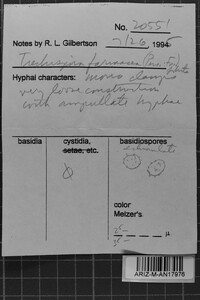 No. 20551
Notes by R. L. Gilbertson 7/26 1994
Trechispora farinacea
Hyphal characters: mono clamps
very loose construction
with ampullate hyphae
basidia cystidia, basidiospores
setae, etc. echinulate
color
Melzer's
35 - µ
ARIZ-M-AN17976